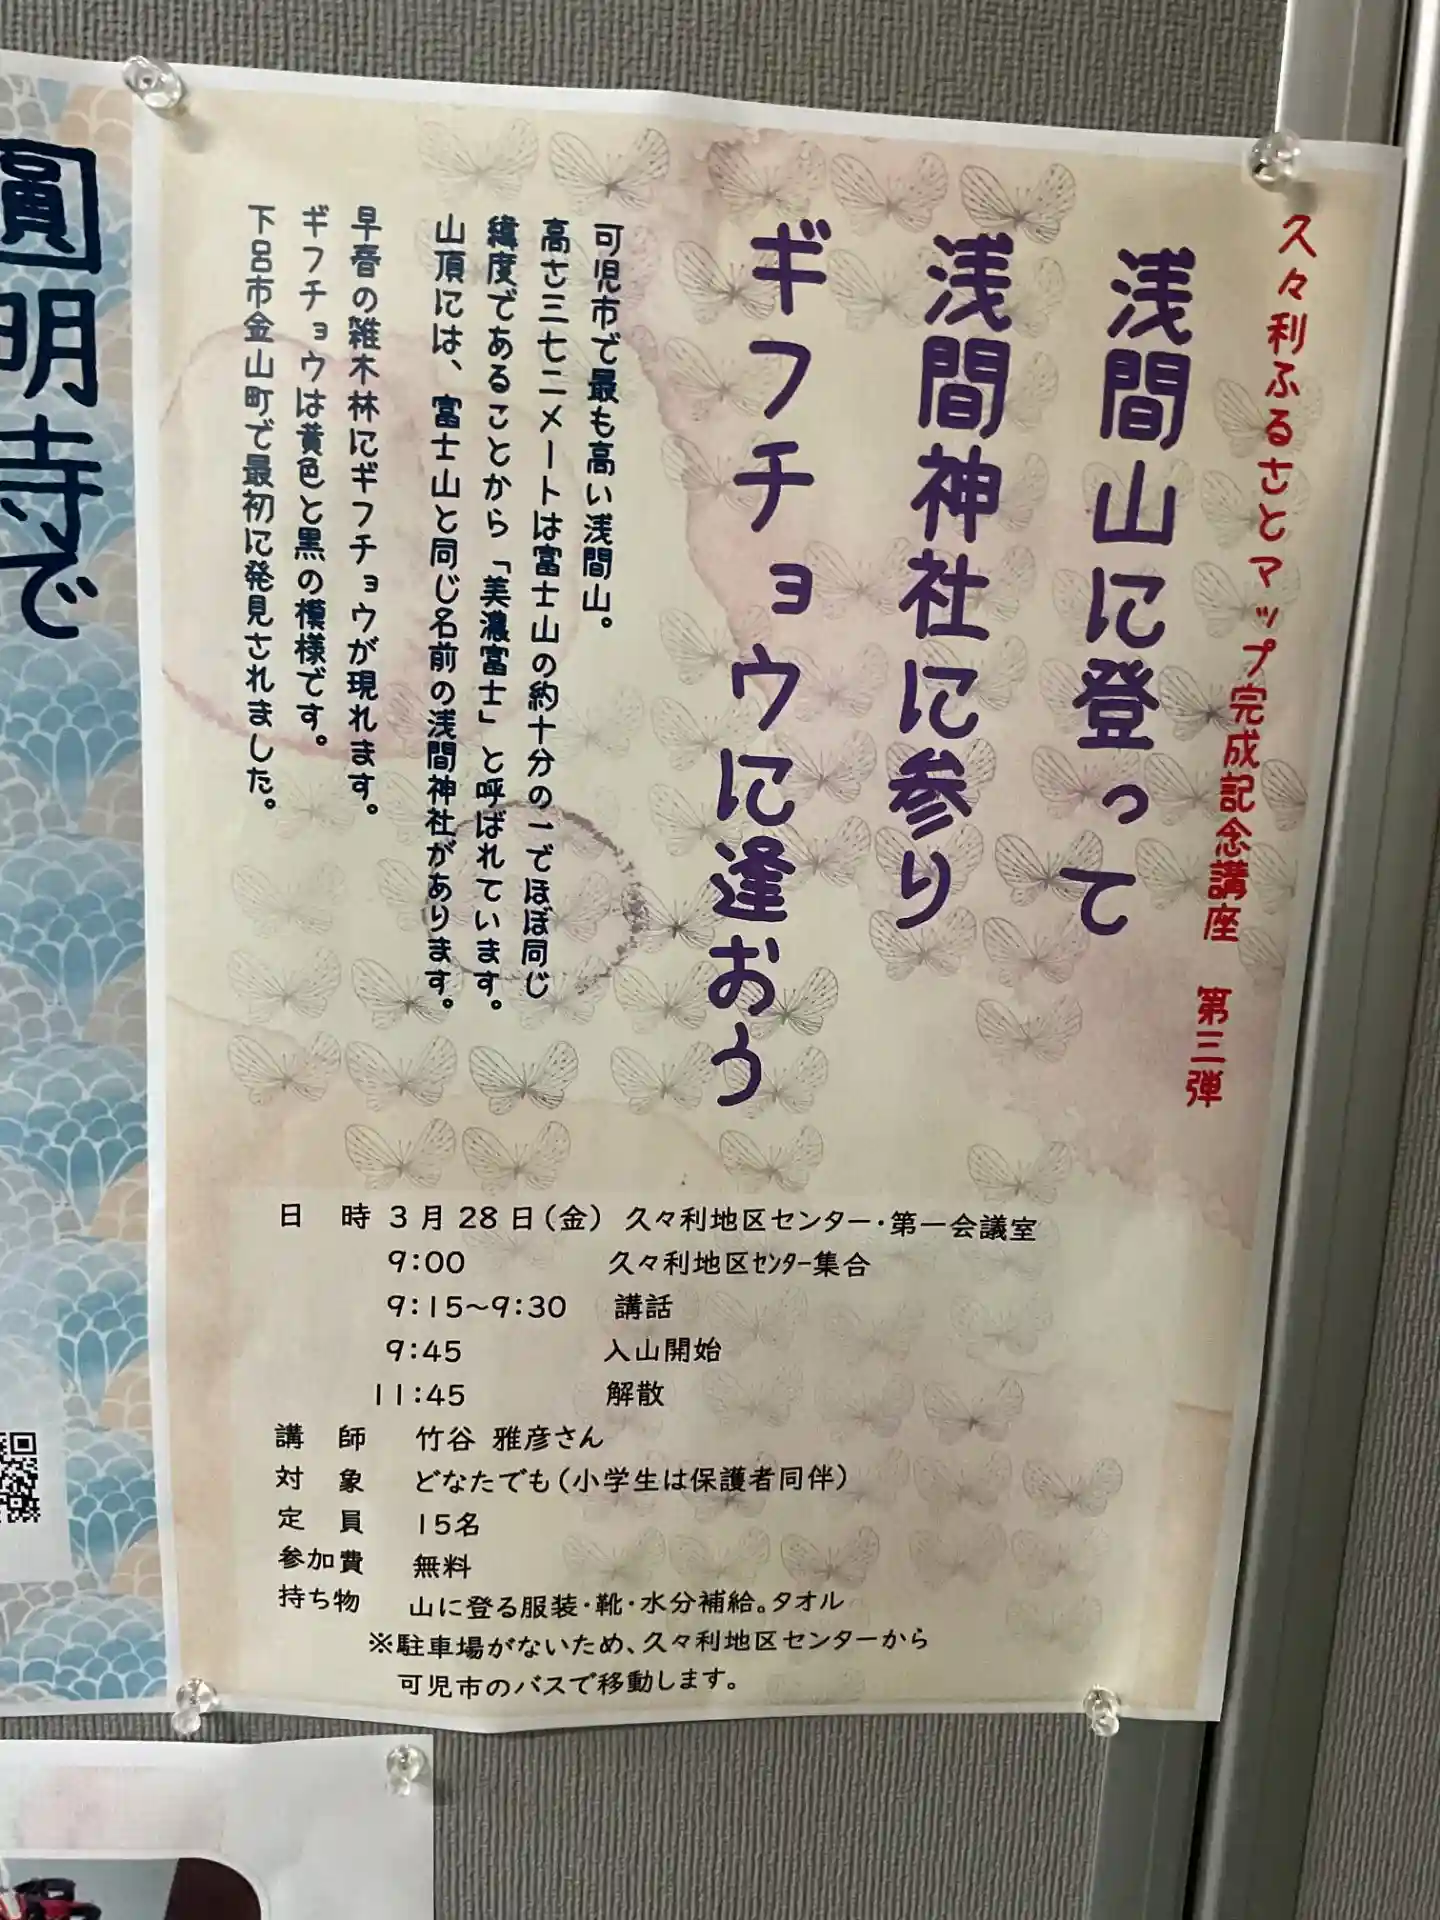 久々利ふるさとマップ完成記念講座　第三弾
浅間山に登って
浅間神社に参り
ギフチョウに逢おう
可児市で最も高い浅間山。
高さ三七二メートは富士山の約十分の一でほぼ同じ
緯度であることから「美濃富士」と呼ばれています。
山頂には、富士山と同じ名前の浅間神社があります。
早春の雑木林にギフチョウが現れます。
ギフチョウは黄色と黒の模様です。
下呂市金山町で最初に発見されました。
日　時 3月28日(金) 久々利地区センター・第一会議室
9:00 久々利地区ｾﾝﾀｰ集合
9:15～9:30 講話
9:45 入山開始
11:45 解散
講　師 竹谷 雅彦さん
対　象 どなたでも(小学生は保護者同伴)
定　員 15名
参加費 無料
持ち物 山に登る服装・靴・水分補給。タオル
※駐車場がないため、久々利地区センターから
可児市のバスで移動します。
圓明寺で